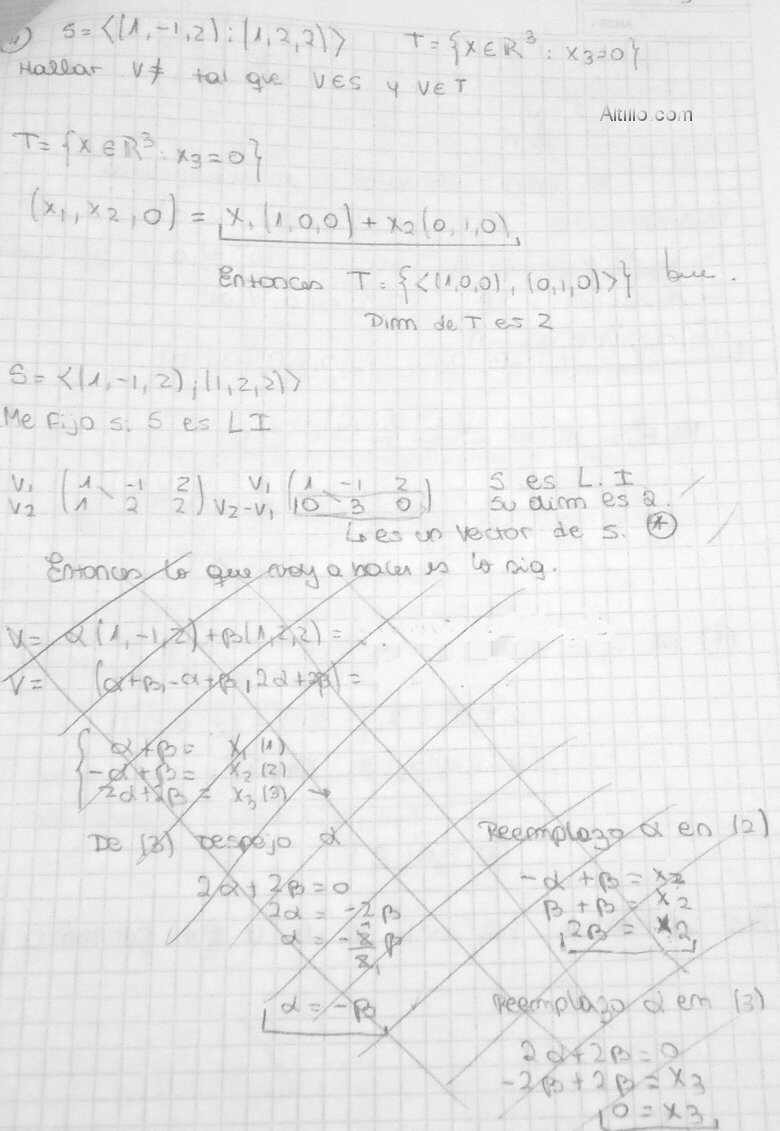 S = <(1,-1,2);(1,2,2)>   T = {x∈ℝ³ : x₃=0}
Hallar V≠ tal que V∈S y V∈T
Altillo.com
T = {x∈ℝ³ : x₃=0}
(x₁,x₂,0) = x₁(1,0,0) + x₂(0,1,0)
Entonces T = {<(1,0,0), (0,1,0)>}
Dim de T es 2
S = <(1,-1,2);(1,2,2)>
Me fijo si S es LI
V₁ (1 -1 2)   V₁ (1 -1 2)   S es L.I
V₂ (1 2 2)   V₂-V₁ (0 3 0)   Su dim es 2.
es un vector de S. *
Entonces lo que voy a hacer es lo sig.
V = α(1,-1,2)+β(1,2,2) =
V = (α+β,-α+β,2α+2β) =
α+β = x₁ (1)
-α+β = x₂ (2)
2α+2β = x₃ (3) →
De (3) Despejo α
2α+2β=0
2α = -2β
α = -2/2 β
α = -β
Reemplazo α en (2)
-α+β = x₂
β+β = x₂
2β = x₂
Reemplazo α en (3)
2α+2β=0
-2β+2β = x₃
0 = x₃